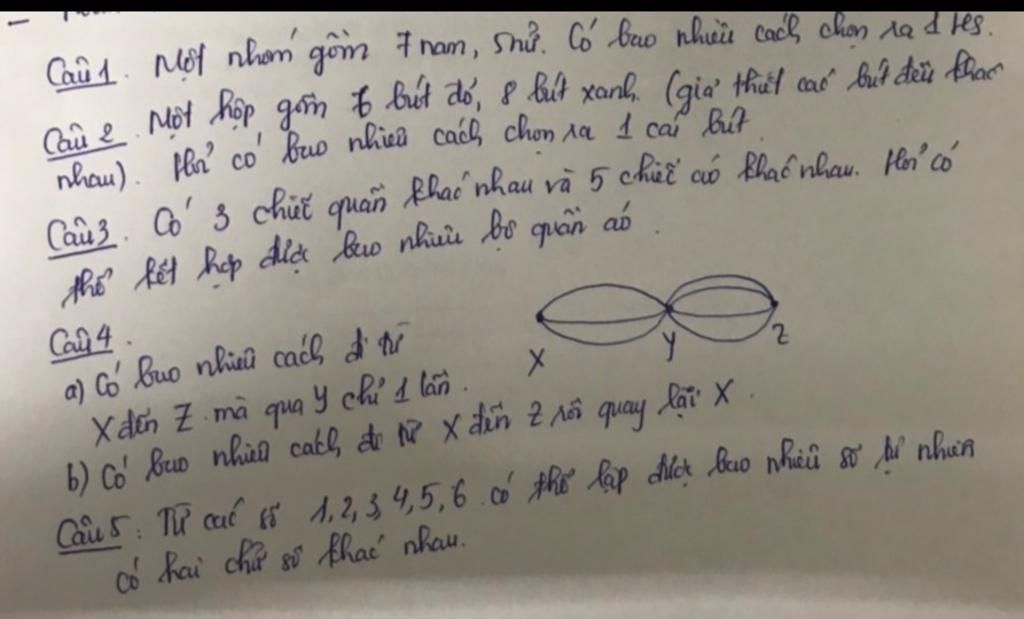 Câu 1. Một nhóm gồm 7 nam, 5 nữ. Có bao nhiêu cách chọn ra 1 Hs.
Câu 2. Một hộp gồm 6 bút đỏ, 8 bút xanh. (giả thiết các bút đều khác
nhau). Hỏi có bao nhiêu cách chọn ra 1 cái bút.
Câu 3. Có 3 chiếc quần khác nhau và 5 chiếc áo khác nhau. Hỏi có
thể kết hợp được bao nhiêu bộ quần áo.
Câu 4.
X Y Z
a) Có bao nhiêu cách đi từ
X đến Z mà qua Y chỉ 1 lần.
b) Có bao nhiêu cách đi từ X đến Z rồi quay lại X.
Câu 5: Từ các số 1, 2, 3, 4, 5, 6 có thể lập được bao nhiêu số tự nhiên
có hai chữ số khác nhau.